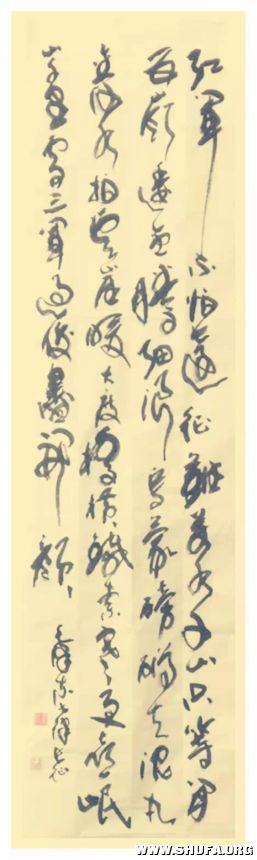 紅軍不怕遠征難萬水千山只等閒
五嶺逶迤騰細浪烏蒙磅礴走泥丸
金沙水拍雲崖暖大渡橋橫鐵索寒更喜岷
山千里雪三軍過後盡開顏
毛澤東長征
WWW.SHUFA.ORG